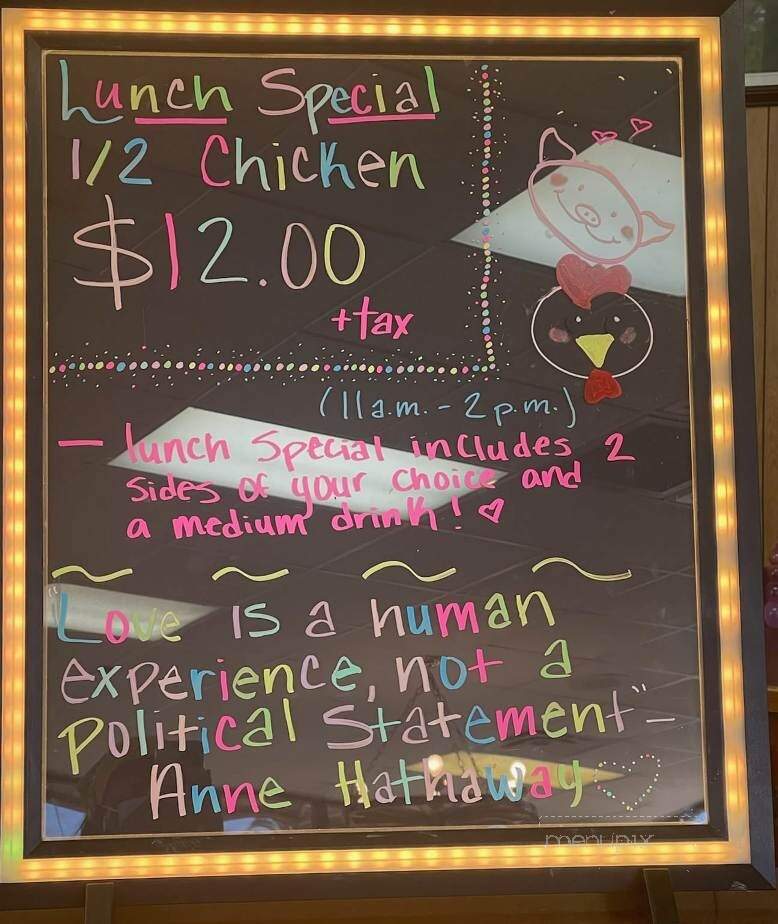 Lunch Special
1/2 Chicken
$12.00
+tax
(11a.m. - 2p.m.)
— lunch Special includes 2
sides of your choice and
a medium drink! ♡
"Love is a human
experience, not a
Political Statement" -
Anne Hathaway ♡
menupix